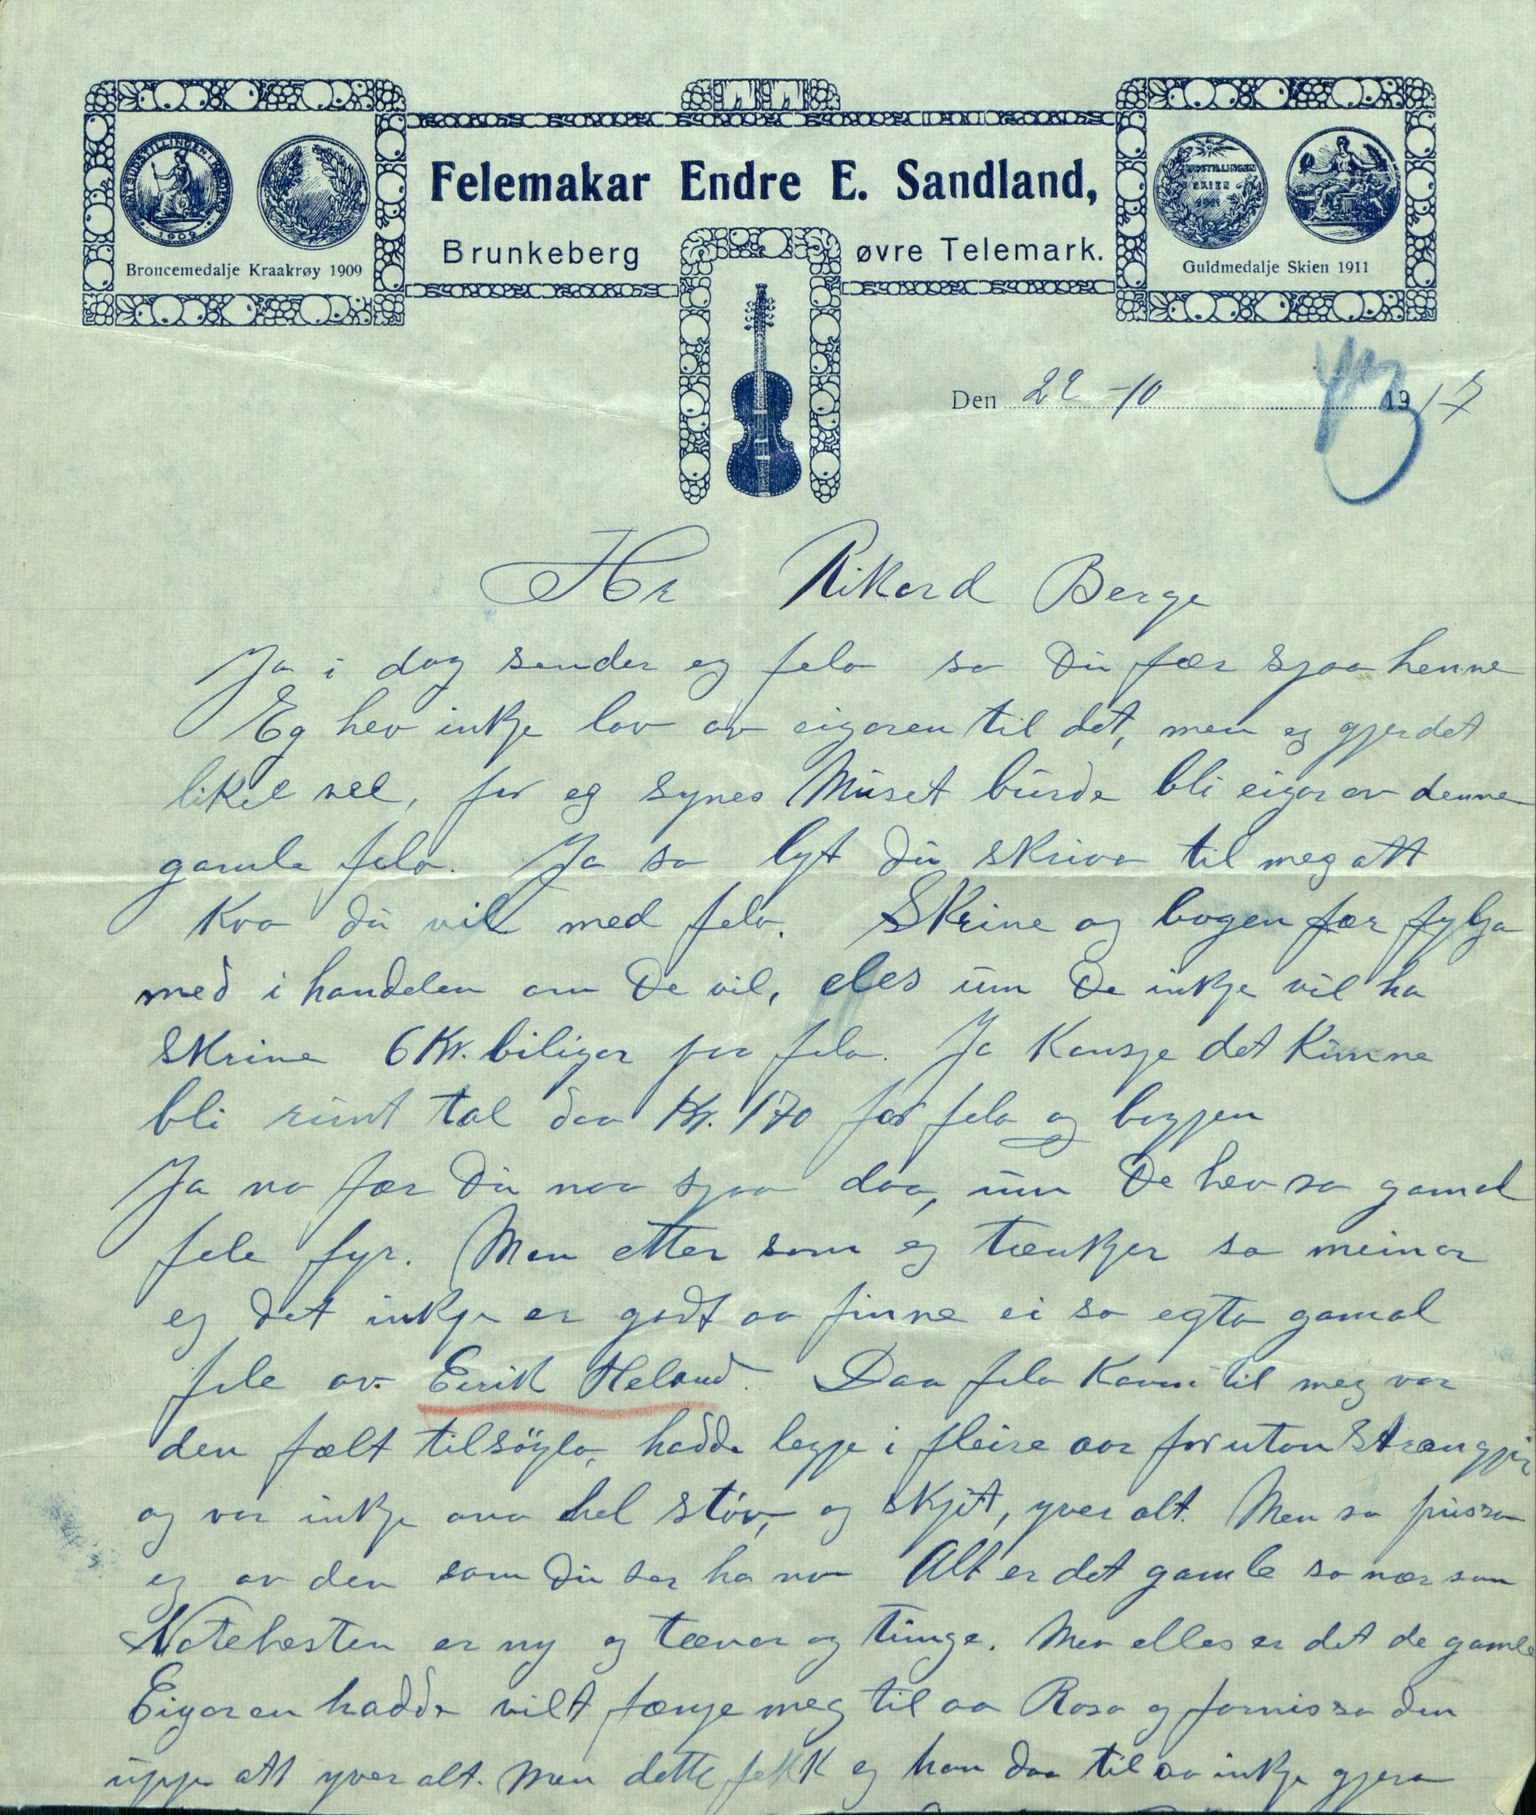 Felemakar Endre E. Sandland,
Brunkeberg øvre Telemark.
UDSTILLINGEN
SKIEN
1911
1909
Broncemedalje Kraakrøy 1909
Guldmedalje Skien 1911
Den 22-10 1917
Hr Rikard Berge
Ja i dag sender eg fela so Du fær sjaa henne
Eg hev inkje lov av eigaren til det, men eg gjer det
likel vel, for eg synes Müset bürde bli eigar av denne
gamle fela. Ja so lyt dü skriva til meg att
Kva dü vil med fela. Skrine og bogen fær fylja
med i handelen om De vil, eles üm De inkje vil ha
skrine 6 Kr. biligar paa fela. Ja Kansje det Künne
bli rünt tal daa Kr. 170 for fela og bogjen
Ja no fær Dü naa sjaa daa, üm De hev so gamal
fele fyr. Men etter som eg tænkjer so meinar
eg det inkje er godt aa finne ei so egta gamal
fele av Eirik Heland. Daa fela Kam til meg var
den fælt tilsöyla, hadde legje i fleire aar for uton Strængjir
og var inkje ana hel støv, og skjit, yver alt. Men so püssa
eg av den som Dü ser ha no Alt er det gamle so nær som
Notehesten er ny og tævar og Tünge. Men elles er det de gamle
Eigaren hadde vilt fænje meg til aa Rosa og fornissa den
üppe att yver alt. Men dette fekk eg han daa til aa inkje gjera